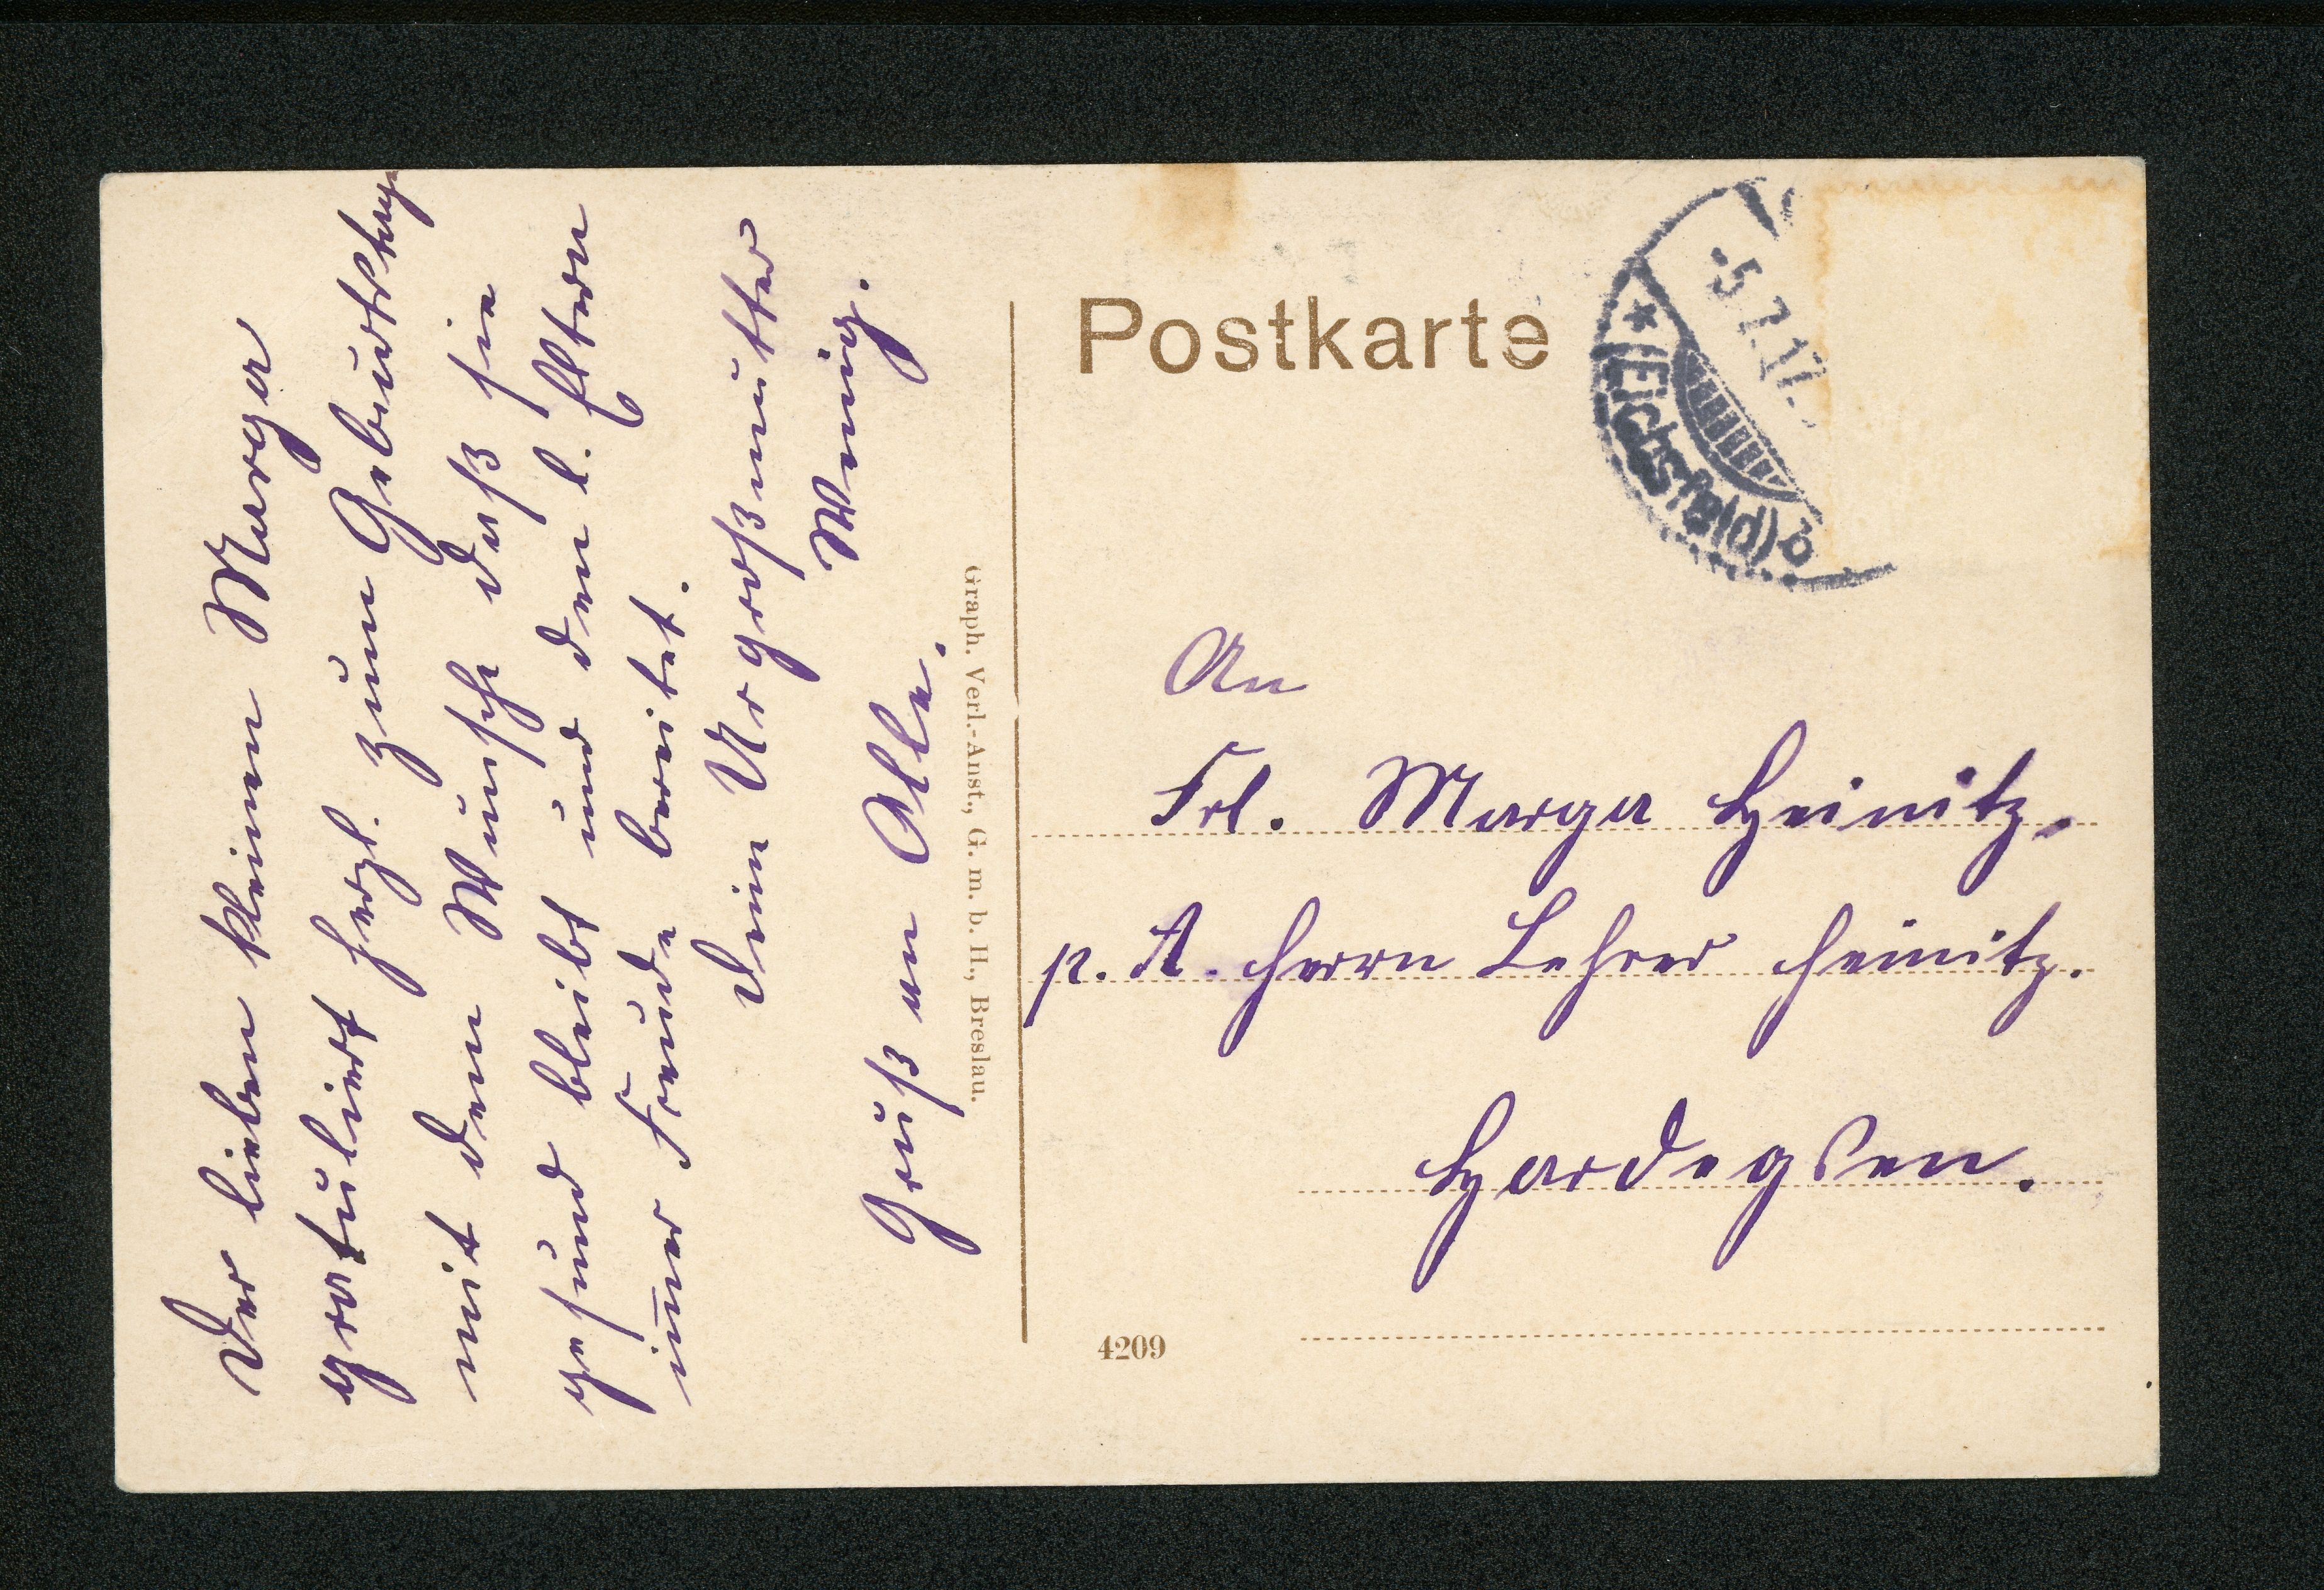 Der lieben kleinen Marga
gratuliert herzl. zum Geburtstage
mit dem Wunsche daß sie
gesund bleibt und den l. Eltern
im̅er Freude bereitet.
Dein Urgroßmutter
Wenig.
Gruß an Alle.
Graph. Verl.-Anst., G. m. b. H., Breslau.
Postkarte
-5 7.17.
* (Eichsfeld) b
An
Frl. Marga Heinitz.
p. A. Herrn Lehrer Heinitz.
Hardegsen.
4209